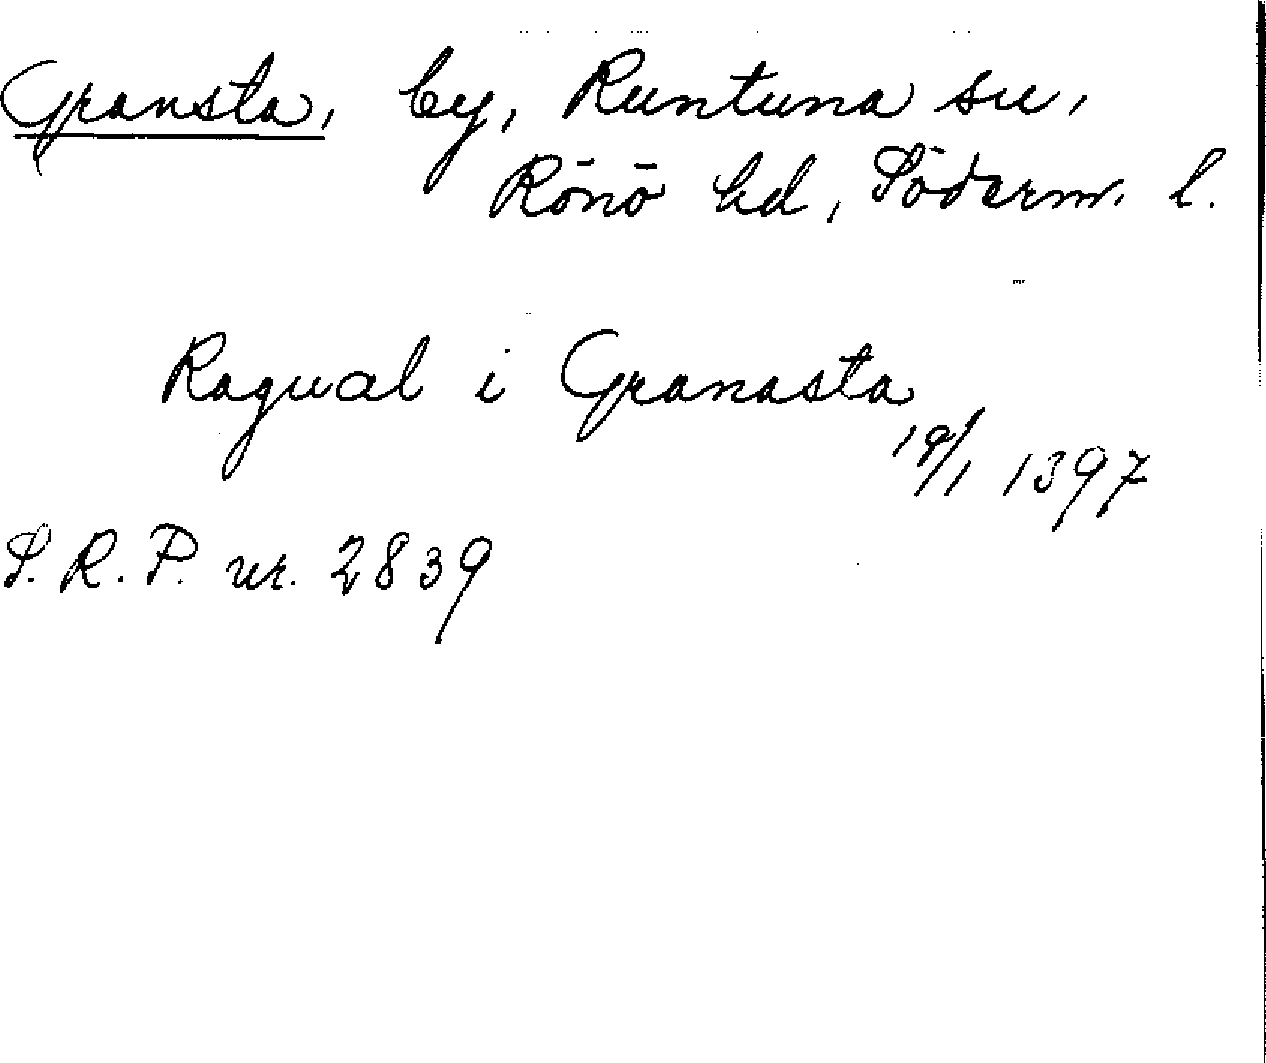 Gransta, by, Runtuna sn,
Rönö hd, Söderm. l.
Ragual i Granasta
19/1 1397
S. R. P. nr. 2839